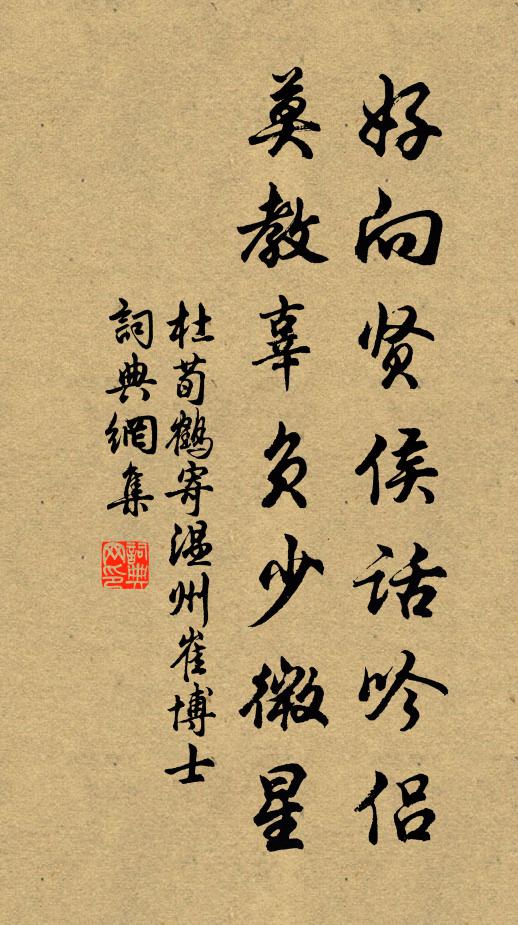 好向贤侯话吟侣
莫教辜负少微星
杜荀鹤寄温州崔博士
詞典網集
詞典
网印